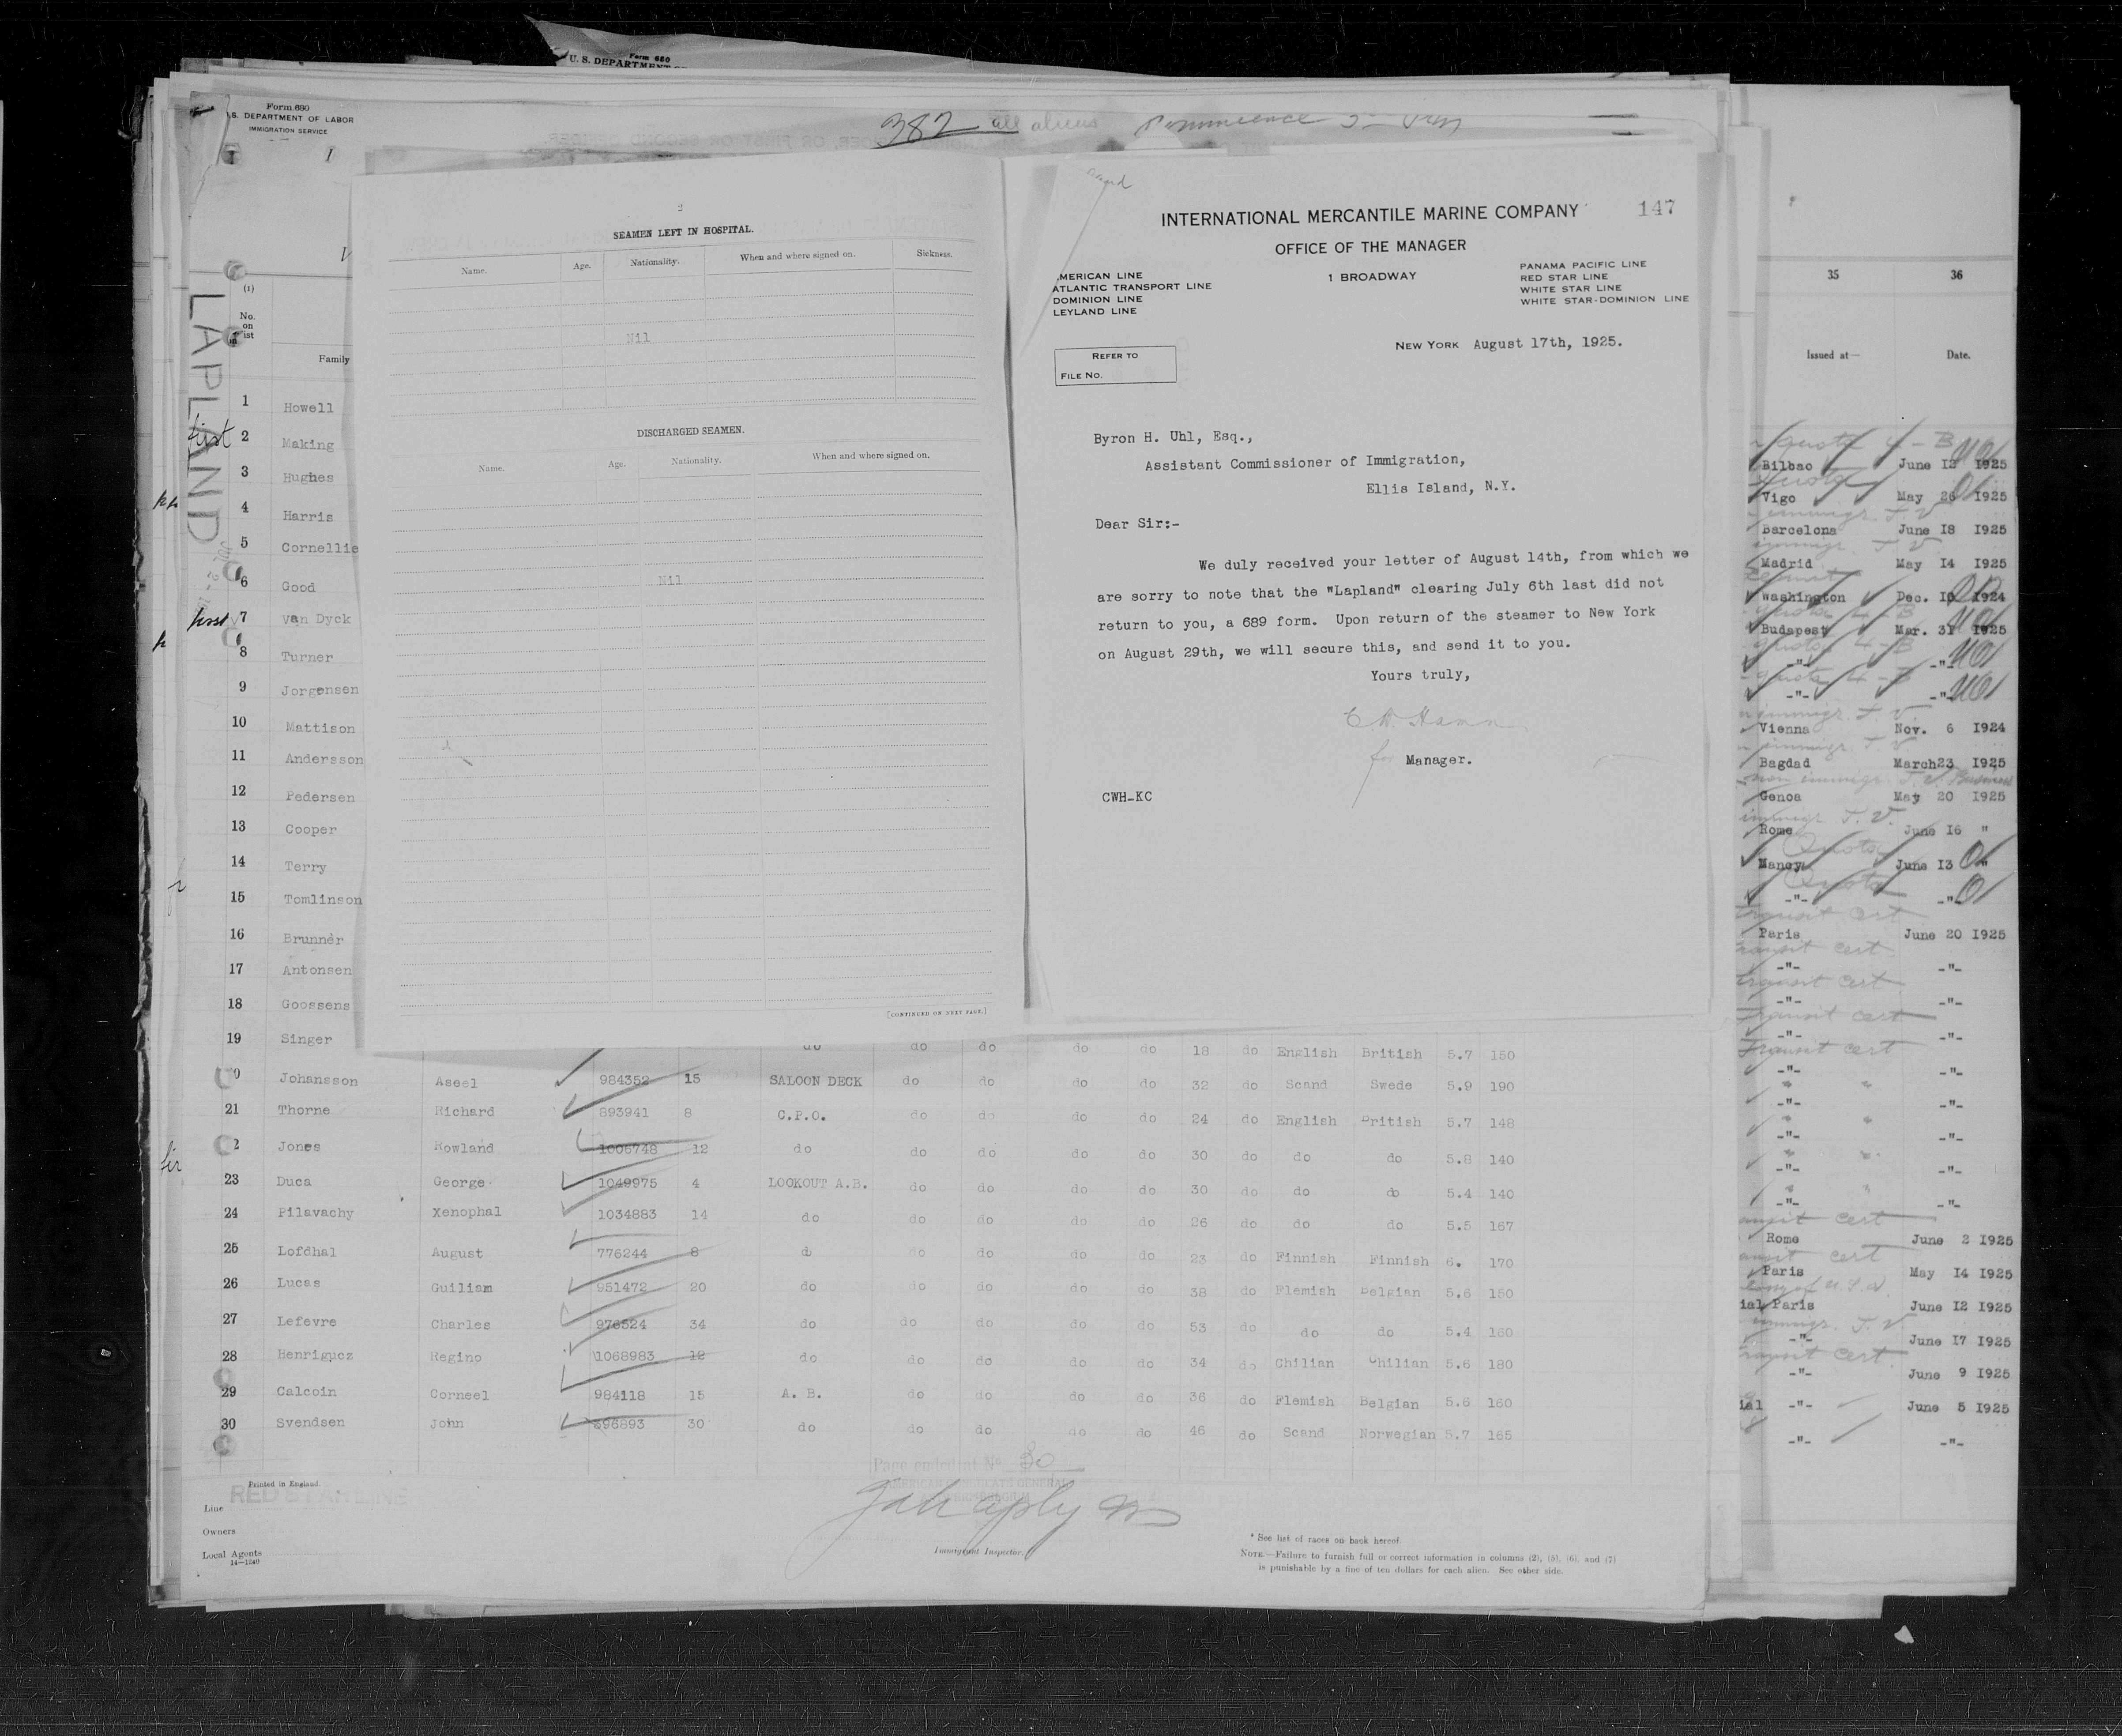 Form 680
U. S. DEPARTMENT
Form 680
S. DEPARTMENT OF LABOR
IMMIGRATION SERVICE
382 all aliens
LAPLAND
(1)
No.
on
ist
Family
1 Howell
first 2 Making
3 Hughes
4 Harris
5 Cornellie
6 Good
first 7 van Dyck
8 Turner
9 Jorgensen
10 Mattison
11 Andersson
12 Pedersen
13 Cooper
14 Terry
15 Tomlinson
16 Brunner
17 Antonsen
18 Goossens
19 Singer do do do do do 18 do English British 5.7 150
0 Johansson Aseel 984352 15 SALOON DECK do do do do 32 do Scand Swede 5.9 190
21 Thorne Richard 893941 8 C.P.O. do do do do 24 do English British 5.7 148
2 Jones Rowland 1006748 12 do do do do do 30 do do do 5.8 140
23 Duca George 1049975 4 LOOKOUT A.B. do do do do 30 do do do 5.4 140
24 Pilavachy Xenophal 1034883 14 do do do do do 26 do do do 5.5 167
25 Lofdhal August 776244 8 do do do do do 23 do Finnish Finnish 6. 170
26 Lucas Guiliam 951472 20 do do do do do 38 do Flemish Belgian 5.6 150
27 Lefevre Charles 976524 34 do do do do do 53 do do do 5.4 160
28 Henriguez Regino 1068983 12 do do do do do 34 do Chilian Chilian 5.6 180
29 Calcoin Corneel 984118 15 A. B. do do do do 36 do Flemish Belgian 5.6 160
30 Svendsen John 896893 30 do do do do do 46 do Scand Norwegian 5.7 165
Page ended at No. 30
AMERICAN CONSULATE GENERAL
Printed in England.
RED STAR LINE
Line
Owners
Local Agents
14—1240
Immigrant Inspector.
* See list of races on back hereof.
NOTE.—Failure to furnish full or correct information in columns (2), (5), (6), and (7)
is punishable by a fine of ten dollars for each alien. See other side.
2
SEAMEN LEFT IN HOSPITAL.
Name. Age. Nationality. When and where signed on. Sickness.
Nil
DISCHARGED SEAMEN.
Name. Age. Nationality. When and where signed on.
Nil
[CONTINUED ON NEXT PAGE.]
INTERNATIONAL MERCANTILE MARINE COMPANY
147
OFFICE OF THE MANAGER
1 BROADWAY
MERICAN LINE
ATLANTIC TRANSPORT LINE
DOMINION LINE
LEYLAND LINE
PANAMA PACIFIC LINE
RED STAR LINE
WHITE STAR LINE
WHITE STAR-DOMINION LINE
REFER TO
FILE NO.
NEW YORK August 17th, 1925.
Byron H. Uhl, Esq.,
Assistant Commissioner of Immigration,
Ellis Island, N.Y.
Dear Sir:-
We duly received your letter of August 14th, from which we
are sorry to note that the "Lapland" clearing July 6th last did not
return to you, a 689 form. Upon return of the steamer to New York
on August 29th, we will secure this, and send it to you.
Yours truly,
for Manager.
CWH-KC
35 36
Issued at— Date.
quota 4-B
Bilbao June 12 1925
Quota
Vigo May 26 1925
immigr. T. V.
Barcelona June 18 1925
immigr. T. V.
Madrid May 14 1925
Washington Dec. 10 1924
quota 4-B
Budapest Mar. 31 1925
quota 4-B
-"- -"-
quota 4-B
-"- -"-
immigr. T. V.
Vienna Nov. 6 1924
immigr. T. V.
Bagdad March23 1925
non immigr. T. V. Business
Genoa May 20 1925
immigr. T. V.
Rome June 16 "
Quota
Nancy June 13 "
Quota
-"- -"-
transit cert
Paris June 20 1925
transit cert
-"- -"-
transit cert
-"- -"-
transit cert
-"- -"-
Transit cert
-"- -"-
" "
-"- -"-
" "
-"- -"-
" "
-"- -"-
" "
-"- -"-
transit cert
Rome June 2 1925
transit cert
Paris May 14 1925
ial Paris June 12 1925
immigr. T. V.
-"- June 17 1925
transit cert
-"- June 9 1925
ial -"- June 5 1925
-"- -"-